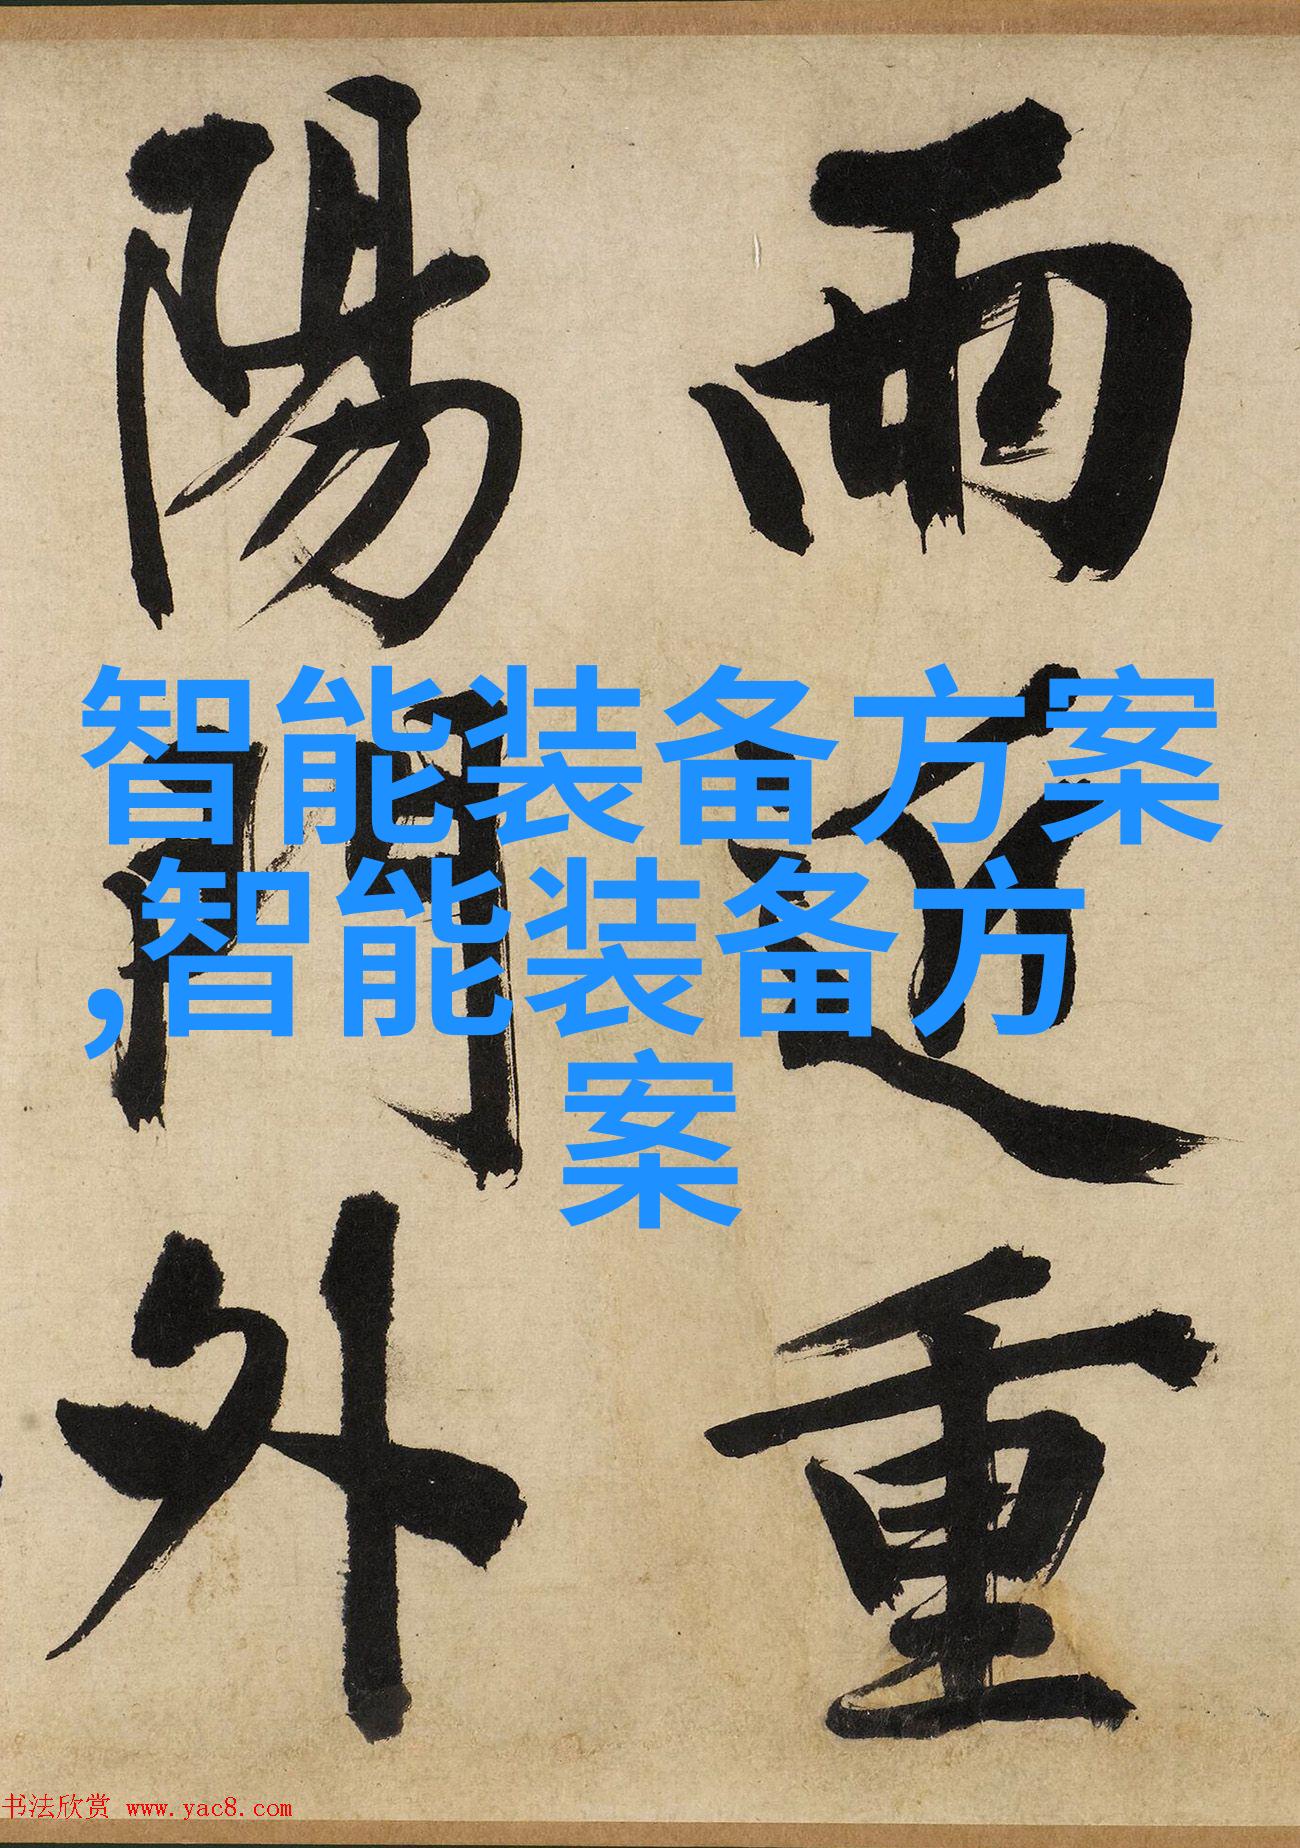 雨近重
陽門外
智能装备方案
,智能装备方
案
书法欣赏 www.yac8.com